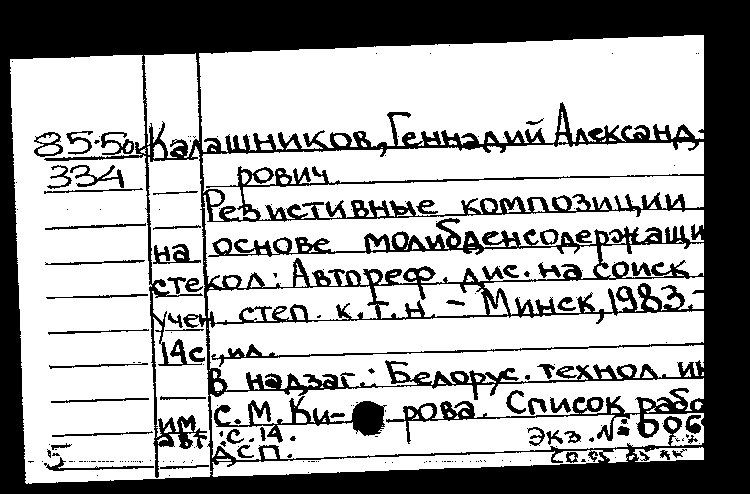 85-5ок Калашников, Геннадий Александ-
334 рович.
Резистивные композиции
на основе молибденсодержащи
стекол: Автореф. дис. на соиск.
учен. степ. к.т.н. - Минск, 1983.-
14с., ил.
В надзаг.: Белорус. технол. ин
им. С.М. Ки- рова. Список рабо
авт.: с. 14.
ДСП. Экз. №: 006
5